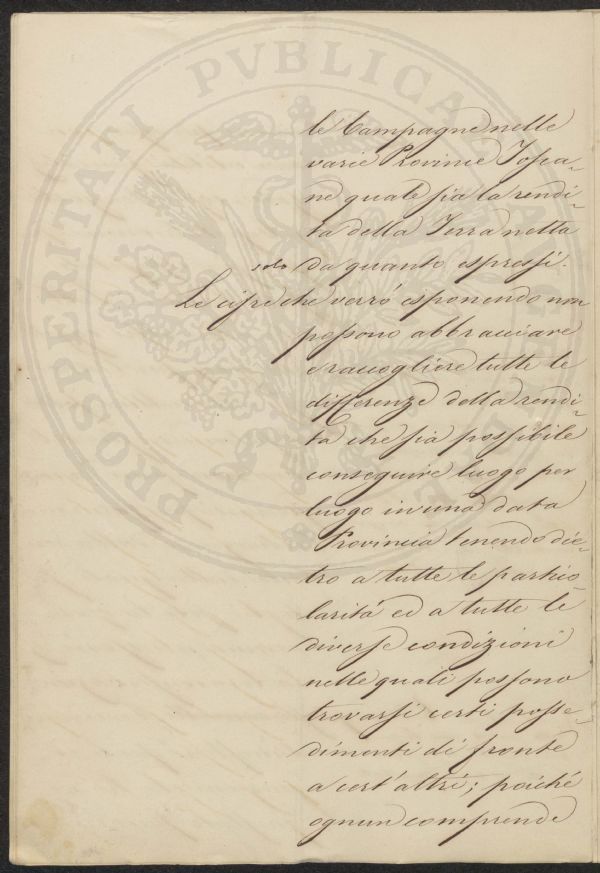 PROSPERITATI PVBLICAE
le Campagne nelle
varie Provincie Tosca-
ne quale sia la rendi-
ta della Terra netta
solo da quanto espressi.
Le cifre che verrò esponendo non
possono abbracciare
e raccogliere tutte le
differenze della rendi-
ta che sia possibile
conseguire luogo per
luogo in una data
Provincia tenendo die-
tro a tutte le partico-
larità ed a tutte le
diverse condizioni
nelle quali possono
trovarsi certi posse-
dimenti di fronte
a cert'altri; poiché
ognun comprende